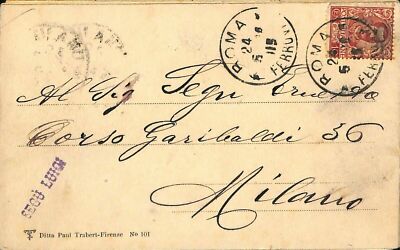 ROMA FERROVIA
24
5 115
ROMA FERROVIA
24
5
MILANO
Al Sig Segù Ernesto
Corso Garibaldi 36
Milano
SEGÙ LUIGI
Ditta Paul Trabert-Firenze No 101